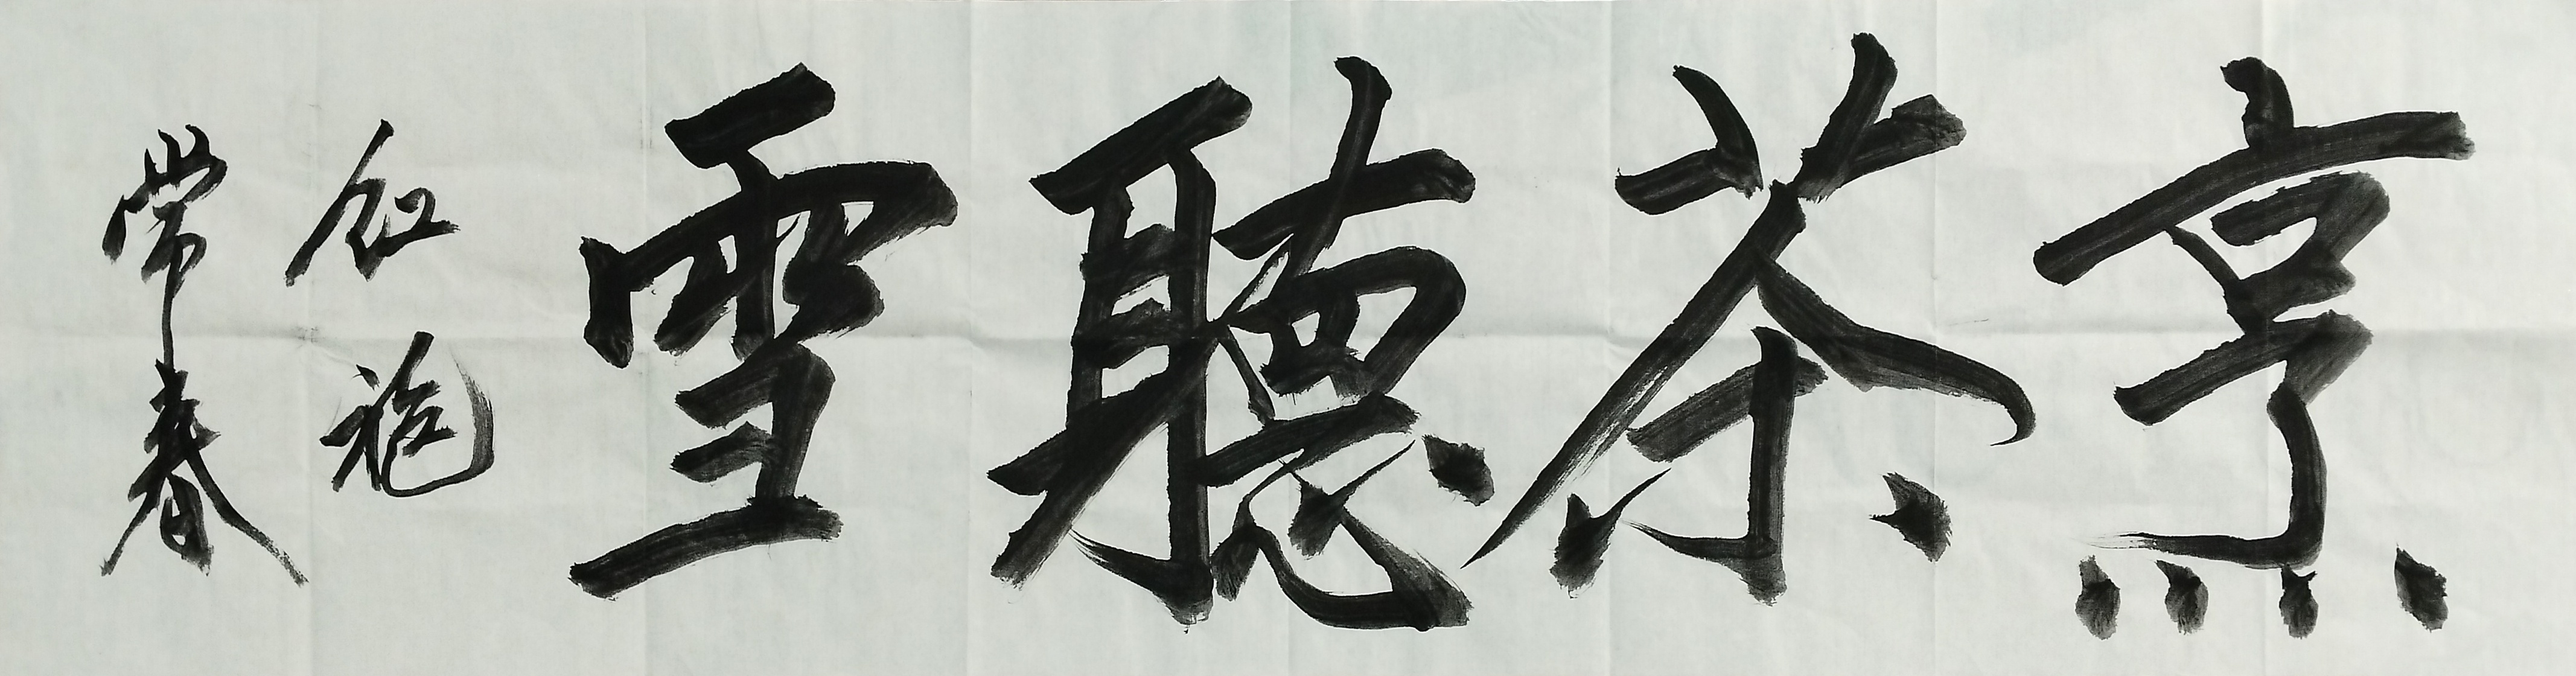 烹茶聽雪
红袍
常春